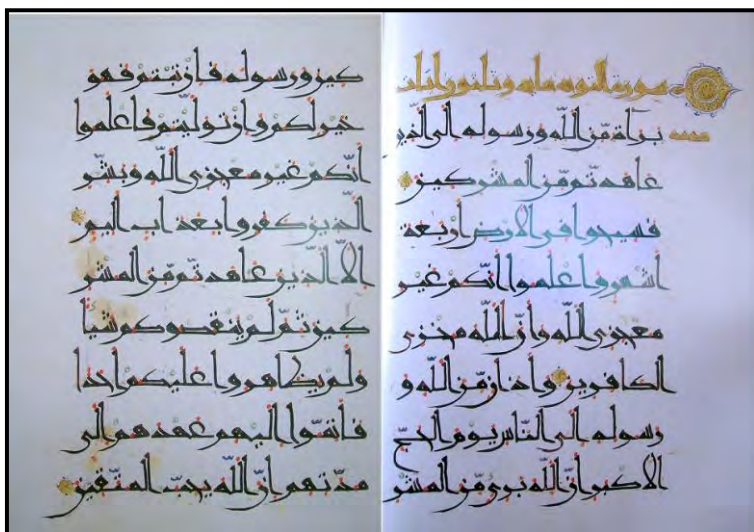 سورة التوبه مايه وثلثون ايات
براة مّن اللّه ورسوله الى الّذين
عاهدتّم مّن المشركين
فسيحوا فى الارض اربعة
اشهر واعلموا انّكم غير
معجزى اللّه وانّ اللّه مخزى
الكافرين واذان مّن اللّه و
رسوله الى النّاس يوم الحجّ
الاكبر انّ اللّه برى مّن المشر
كين ورسوله فان تبتم فهو
خير لكم وان تولّيتم فاعلموا
انّكم غير معجزى اللّه وبشّر
الّذين كفروا بعذاب اليم
الاّ الّذين عاهدتّم مّن المشر
كين ثمّ لم ينقصوكم شيا
ولم يظاهروا عليكم احدا
فاتمّوا اليهم عهدهم الى
مدّتهم انّ اللّه يحبّ المتّقين